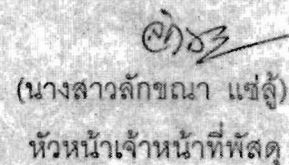 (นางสาวลักขณา แซ่ลู้)
หัวหน้าเจ้าหน้าที่พัสดุ